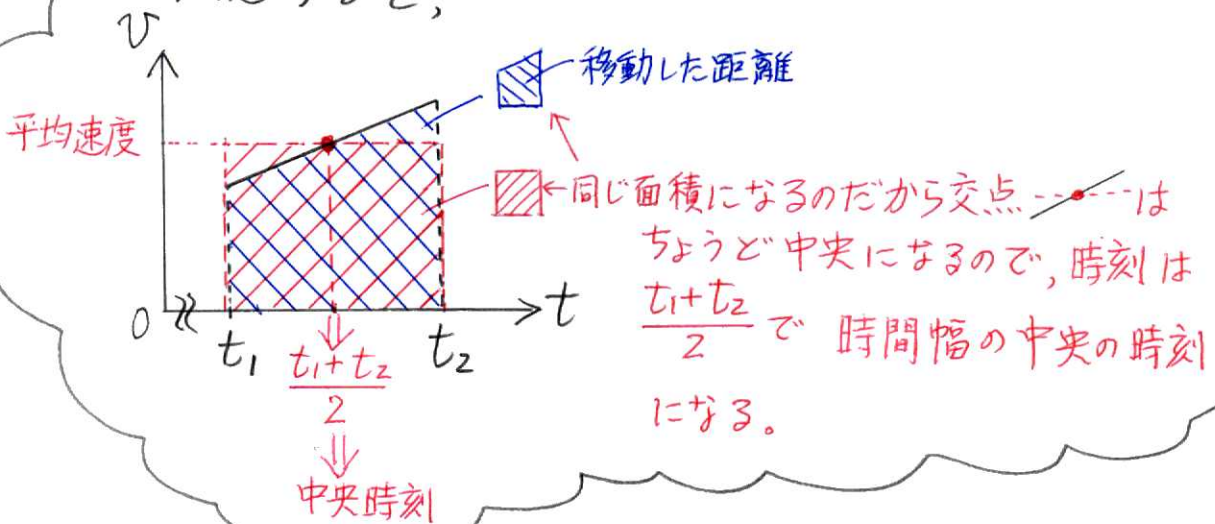 v
移動した距離
平均速度
同じ面積になるのだから交点 は
ちょうど中央になるので,時刻は
t₁+t₂/2 で 時間幅の中央の時刻
になる。
0
t
t₁
t₂
t₁+t₂/2
中央時刻